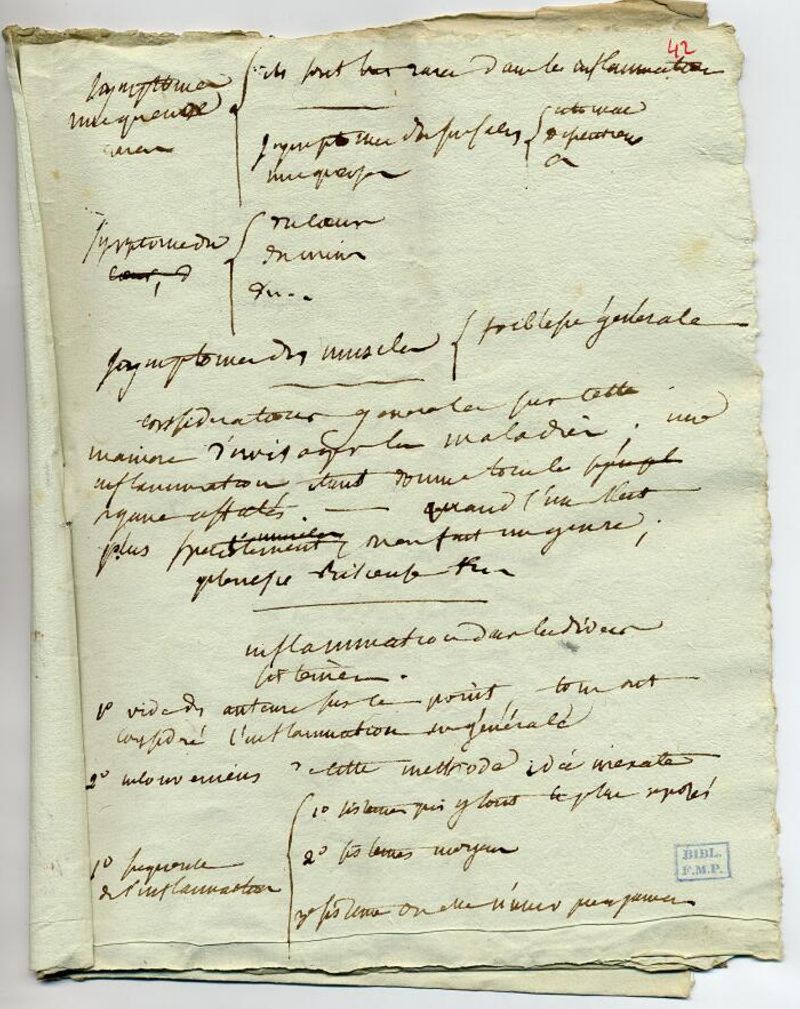 42
symptomes
muqueuse
{ ils sont rares dans les inflammation
symptome des surfaces
muqueuses
{
symptome du
{ du coeur
du
du...
symptomes des muscles { foiblesse générale
considerations generales sur cette
maniere d'envisager les maladies ; une
inflammation étant donnée tous les
organe affectés. — quand l'un l'est
plus on en fait un genre ;
inflammation dans les divers
sistemes.
1° vide des auteurs sur ce point, tous ont
consideré l'inflammation en générale
2° inconveniens de cette methode idée inexacte
1° frequence
de l'inflammation
{ 1° sistemes qui y sont le plus exposés
2° sistemes moyens
3° sisteme ou elle n'existe presque jamais
BIBL.
F.M.P.